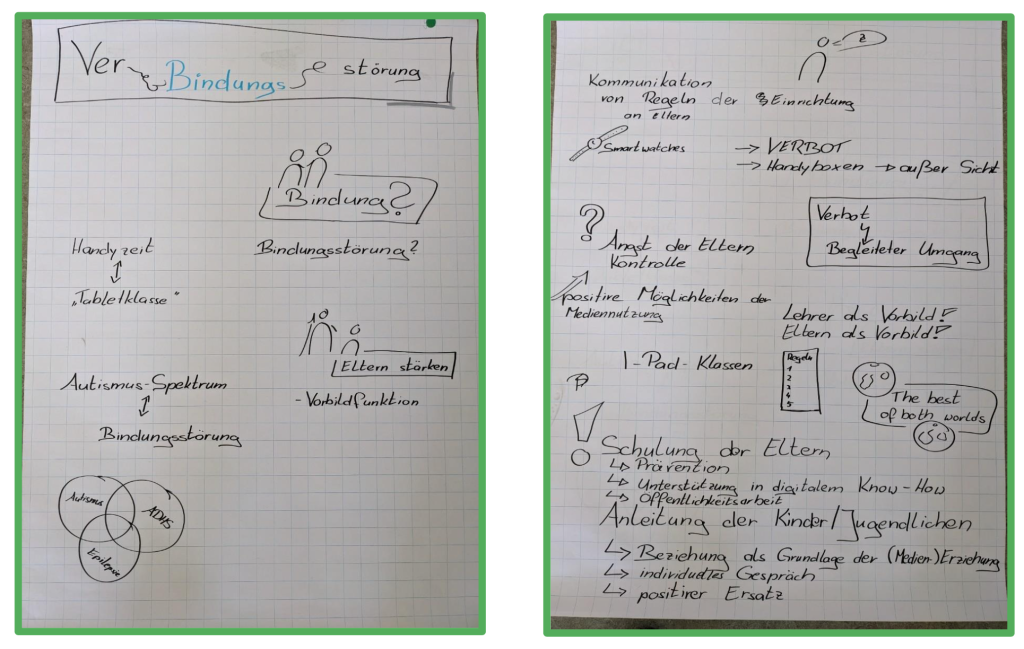 Ver Bindungs störung
Bindung?
Handyzeit
Bindungsstörung?
„Tabletklasse"
Eltern stärken
Autismus-Spektrum
- Vorbildfunktion
Bindungsstörung
Autismus
ADHS
Epilepsie
Kommunikation
von Regeln der Einrichtung
an Eltern
Smartwatches → VERBOT
→ Handyboxen → außer Sicht
?
Angst der Eltern
Kontrolle
Verbot
Begleiteter Umgang
positive Möglichkeiten der
Mediennutzung
Lehrer als Vorbild!
Eltern als Vorbild!
I-Pad-Klassen
Regeln
1
2
3
4
5
The best
of both worlds
!
Schulung der Eltern
↳ Prävention
↳ Unterstützung in digitalem Know-How
↳ Öffentlichkeitsarbeit
Anleitung der Kinder/Jugendlichen
↳ Beziehung als Grundlage der (Medien-)Erziehung
↳ individuelles Gespräch
↳ positiver Ersatz